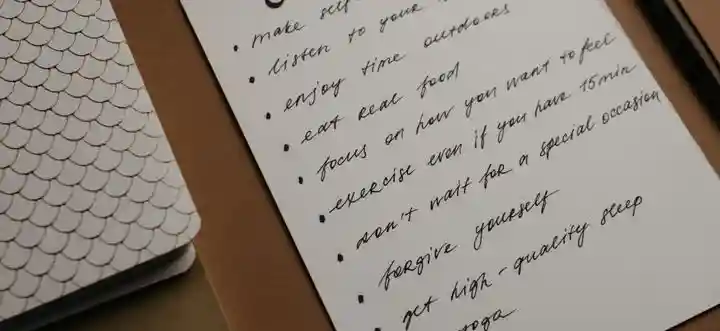 • make self
• listen to your
• enjoy time outdoors
• eat real food
• focus on how you want to feel
• exercise even if you have 15 min
• don't wait for a special occasion
• forgive yourself
• get high-quality sleep
yoga